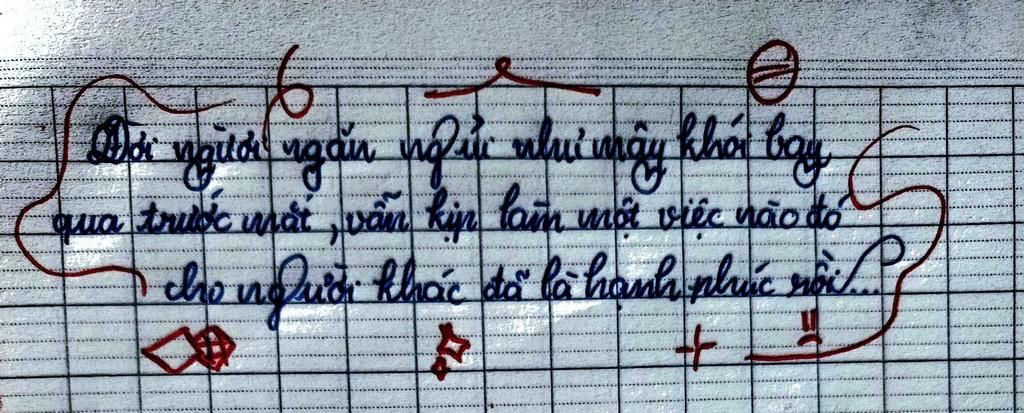 Đời người ngắn ngủi như mây khói bay
qua trước mắt, vẫn kịp làm một việc nào đó
cho người khác đã là hạnh phúc rồi...